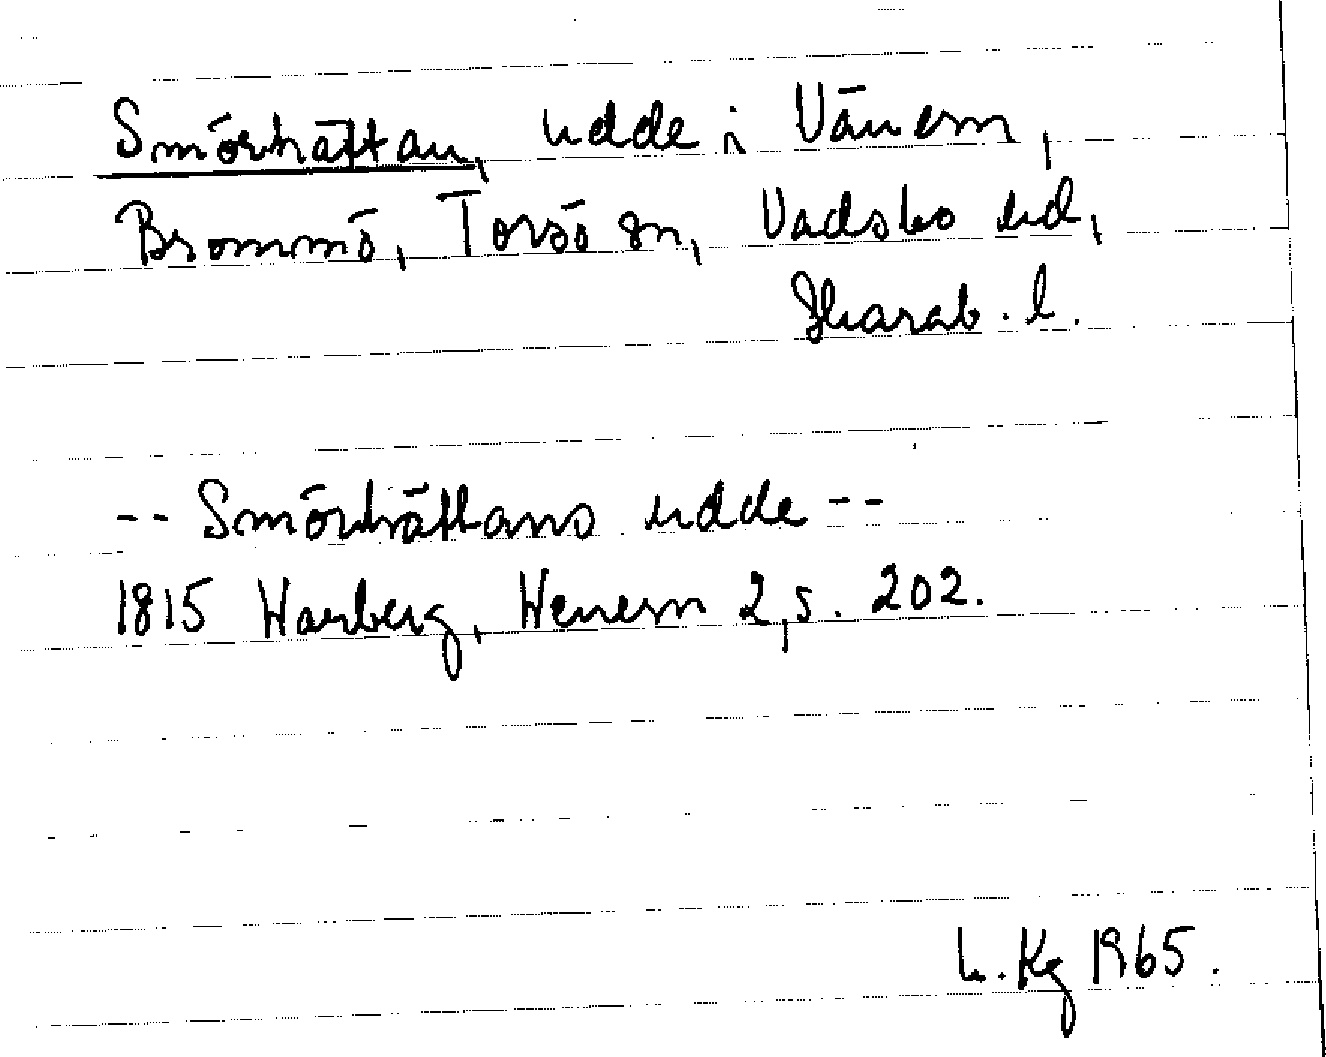 Smörhättan, udde i Vänern,
Brommö, Torsö sn, Vadsbo hd,
Skarab. l.
-- Smörhättans udde --
1815 Warberg, Wenern 2, s. 202.
h. Kg 1965.